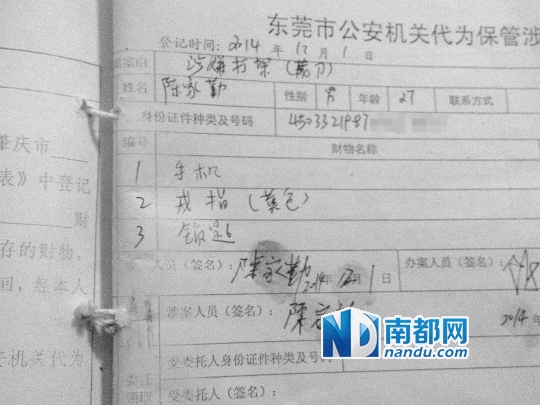 东莞市公安机关代为保管涉
登记时间：2014 年 12 月 1 日
涉嫌打架(
姓名 陈家勤 性别 男 年龄 27 联系方式
身份证件种类及号码 4503321987
编号 财物名称
1 手机
2 戒指(黄色)
3 钥匙
人员(签名)：陈家勤 2014年12月1日 办案人员(签名)：
涉案人员(签名)：陈家 2014年
受委托人身份证件种类及号码
受委托人(签名)：
肇庆市
表》中登记
财
存的财物，
回，经本人
安机关代为
南都网
nandu.com